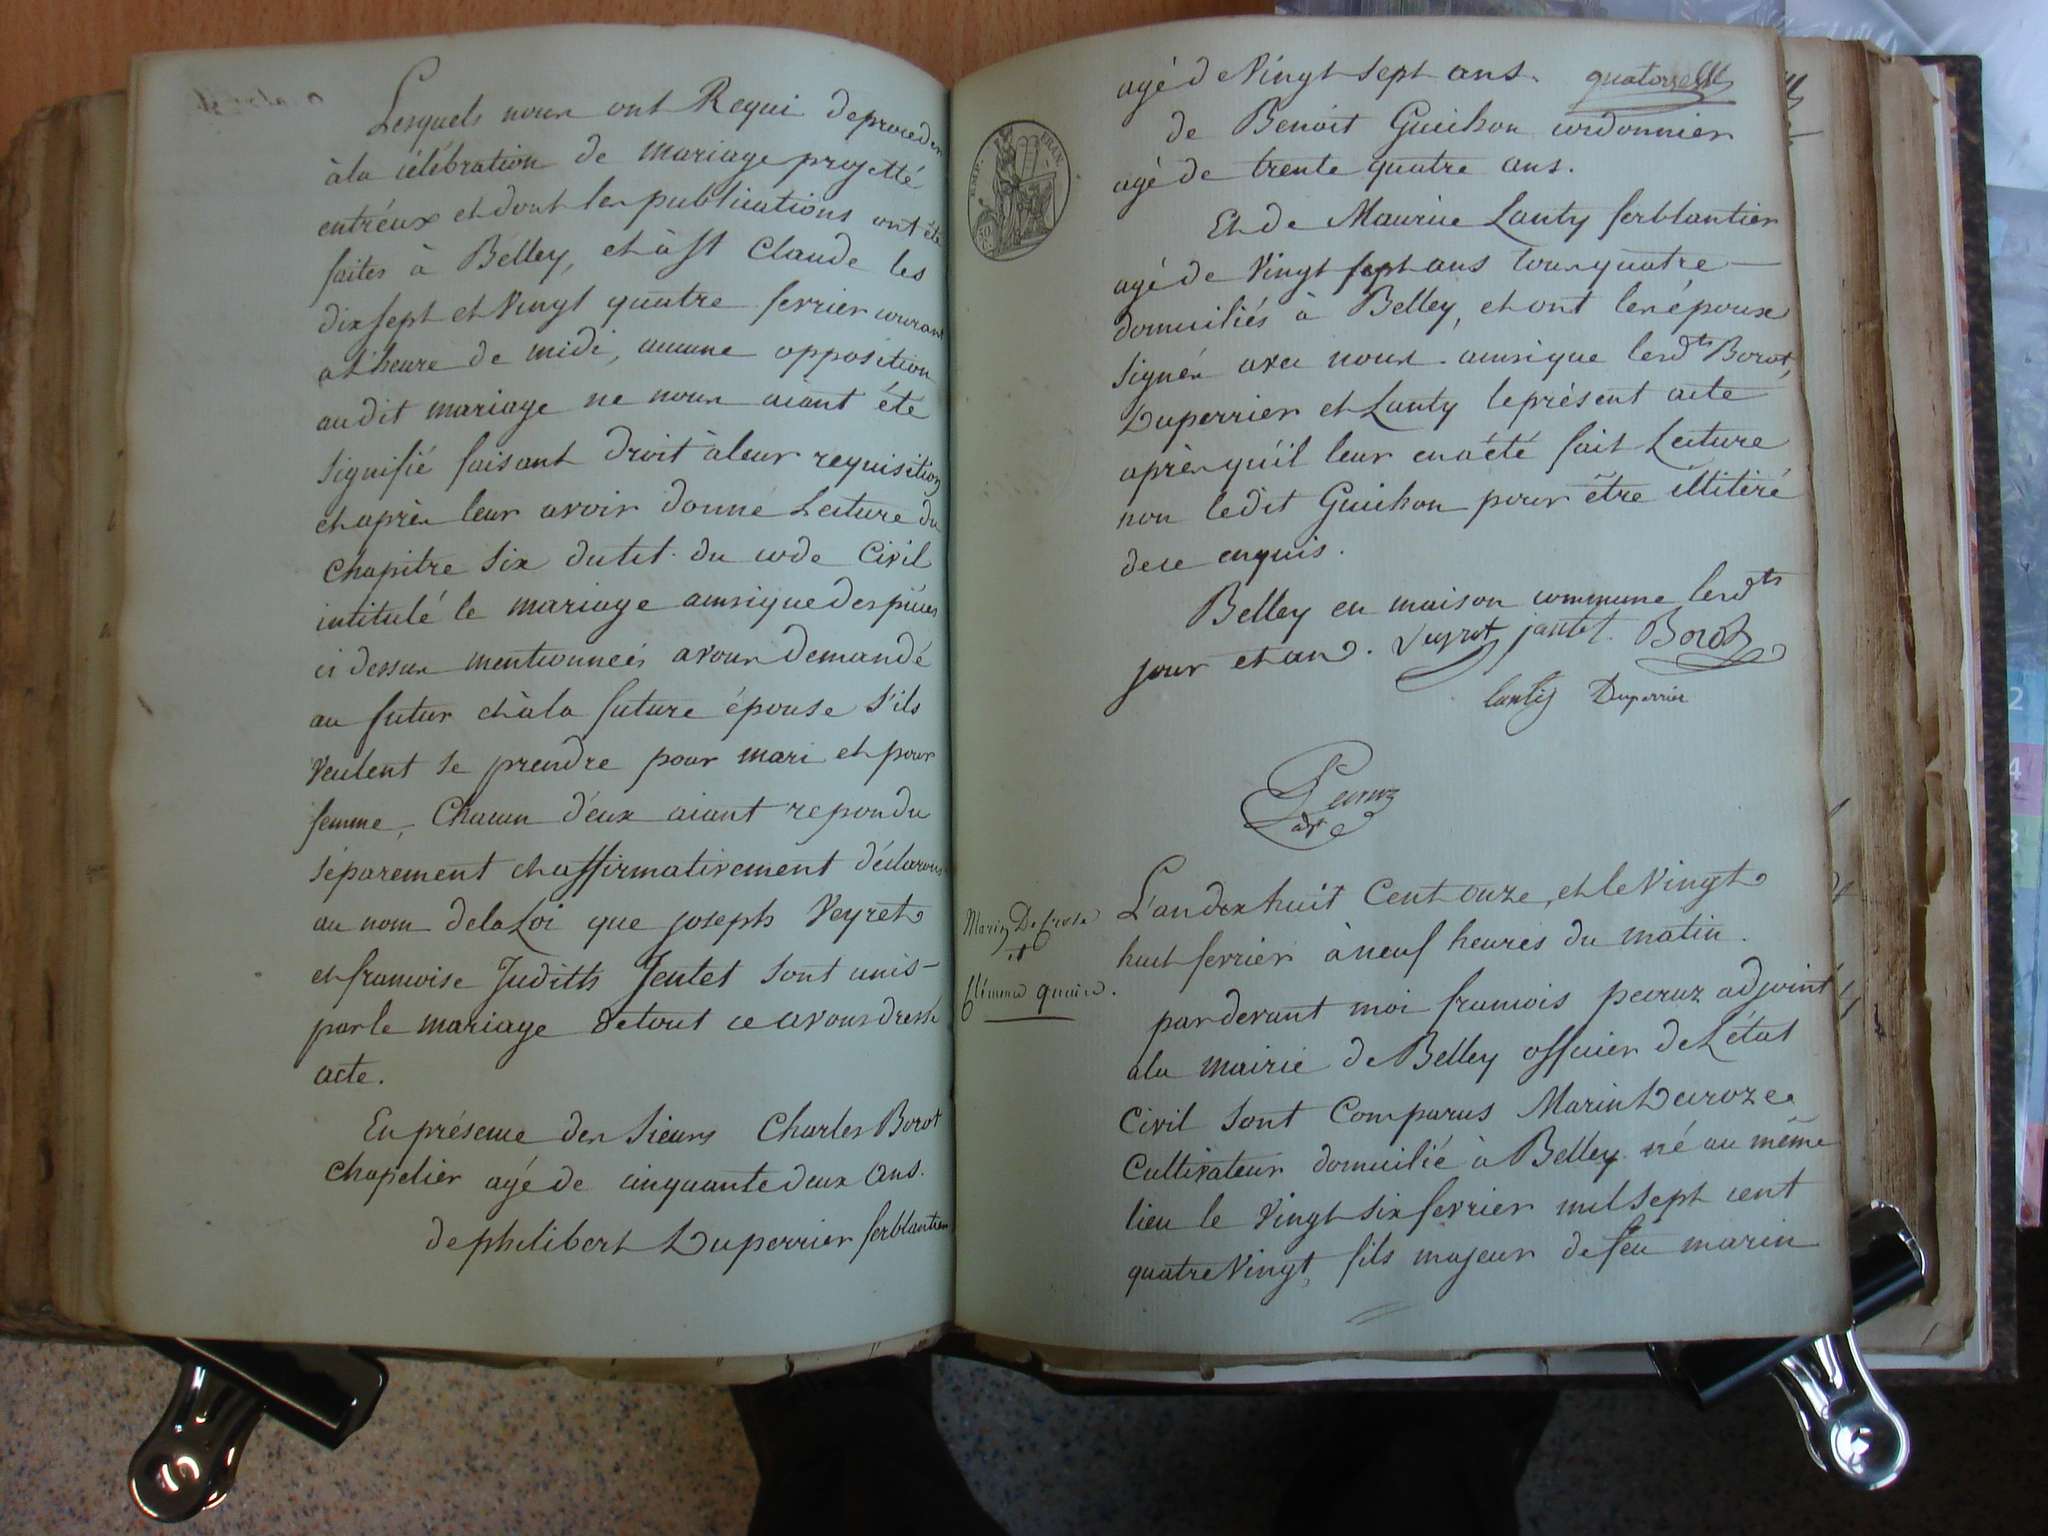 Lesquels nous ont Requi de proceder
à la célébration de mariage projetté
entréux et dont les publications ont été
faites à Bélley, et à St Claude les
dix sept et vingt quatre ferrier courant
a l'heure de midi, aucune opposition
au dit mariage ne nous aiant été
signifié faisant droit à leur requisition
et après leur avoir donné Lecture du
Chapitre Six du tit. du code Civil
intitulé le mariage ainsi que des pièces
ci dessus mentionnées avons demandé
au futur et à la future épouse s'ils
veulent se prendre pour mari et pour
femme, Chacun d'eux aiant repondu
séparement et affirmativement déclarons
au nom de la Loi que joseph Veyret
et francoise Judith Jentet sont unis
par le mariage de tout ce avons dressé
acte.
En présence des Sieurs Charles Borot
chapelier agé de cinquante deux ans.
de philibert Duperrier ferblantier
agé de vingt sept ans. quatorze
de Benoit Guichon cordonnier
agé de trente quatre ans.
Et de Maurice Lanty ferblantier
agé de vingt sept ans tous quatre
domiciliés à Belley, et ont les époux
signés avec nous ainsi que lesdts Borot,
Duperrier et Lanty le présent acte
après qu'il leur en a été fait Lecture
non ledit Guichon pour être illitéré
de ce enquis.
Belley en maison commune lesdts
jour et an. Veyret jantet. Borot
lantis Duperrier
Peeruz
adt
EMP. FRAN.
Marin De Croze
et
Clémence
L'an dix huit Cent onze, et le vingt
huit ferrier à neuf heures du matin.
par devant moi francois peeruz adjoint
a la mairie de Belley officier de L'état
Civil sont Comparus Marin Decroze
Cultivateur domicilié à Belley né au même
lieu le vingt six ferrier mil sept cent
quatre vingt, fils majeur de feu marin